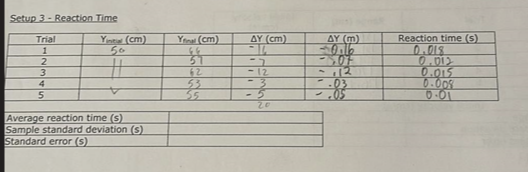 Setup 3 - Reaction Time
Trial Yinitial (cm) Yfinal (cm) ΔY (cm) ΔY (m) Reaction time (s)
1 50 66 -16 -0.16 0.018
2 57 -7 -.07 0.012
3 62 -12 -.12 0.015
4 53 -3 -.03 0.008
5 55 -5 -.05 0.01
20
Average reaction time (s)
Sample standard deviation (s)
Standard error (s)